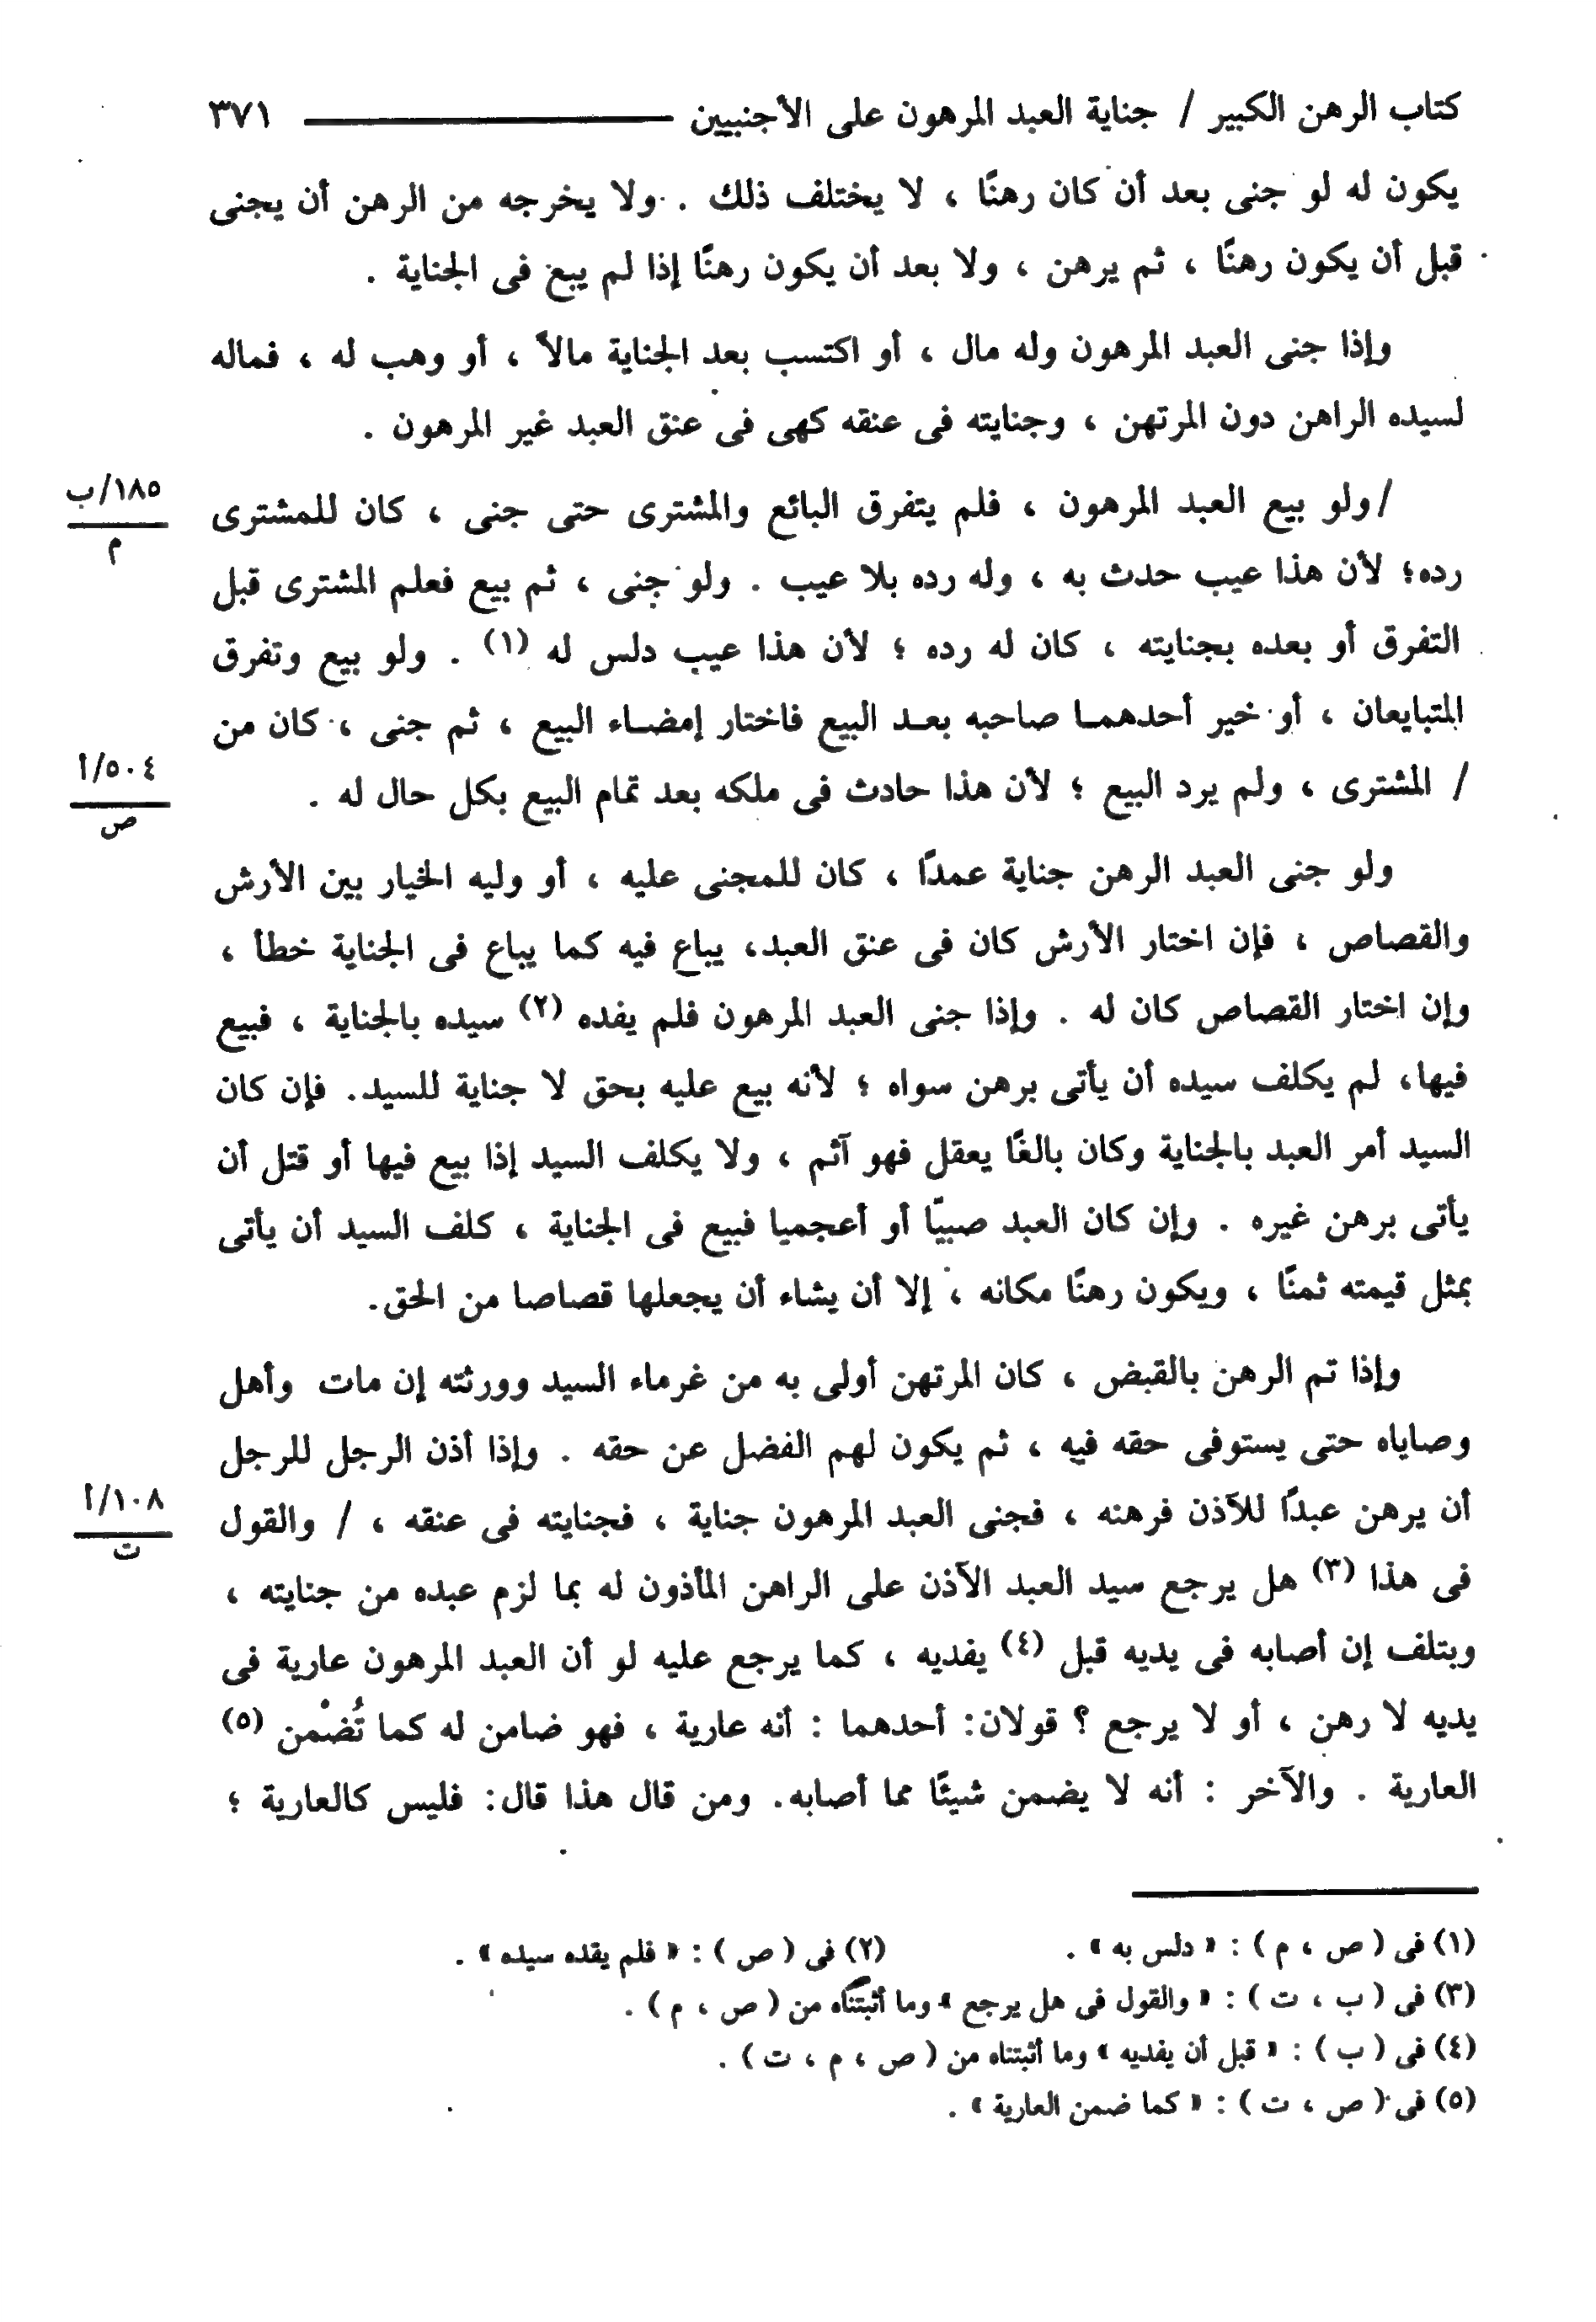 كتاب الرهن الكبير / جناية العبد المرهون على الأجنبيين ٣٧١
يكون له لو جنى بعد أن كان رهنًا ، لا يختلف ذلك . ولا يخرجه من الرهن أن يجنى
قبل أن يكون رهنًا ، ثم يرهن ، ولا بعد أن يكون رهنًا إذا لم يبع فى الجناية .
وإذا جنى العبد المرهون وله مال ، أو اكتسب بعد الجناية مالاً ، أو وهب له ، فماله
لسيده الراهن دون المرتهن ، وجنايته فى عنقه كهى فى عنق العبد غير المرهون .
١٨٥/ب
م
/ولو بيع العبد المرهون ، فلم يتفرق البائع والمشترى حتى جنى ، كان للمشترى
رده؛ لأن هذا عيب حدث به ، وله رده بلا عيب . ولو جنى ، ثم بيع فعلم المشترى قبل
التفرق أو بعده بجنايته ، كان له رده ؛ لأن هذا عيب دلس له (١) . ولو بيع وتفرق
المتبايعان ، أو خير أحدهما صاحبه بعد البيع فاختار إمضاء البيع ، ثم جنى ، كان من
٥٠٤/أ
ص
/ المشترى ، ولم يرد البيع ؛ لأن هذا حادث فى ملكه بعد تمام البيع بكل حال له .
ولو جنى العبد الرهن جناية عمدًا ، كان للمجنى عليه ، أو وليه الخيار بين الأرش
والقصاص ، فإن اختار الأرش كان فى عنق العبد، يباع فيه كما يباع فى الجناية خطأ ،
وإن اختار القصاص كان له . وإذا جنى العبد المرهون فلم يفده (٢) سيده بالجناية ، فبيع
فيها، لم يكلف سيده أن يأتى برهن سواه ؛ لأنه بيع عليه بحق لا جناية للسيد. فإن كان
السيد أمر العبد بالجناية وكان بالغًا يعقل فهو آثم ، ولا يكلف السيد إذا بيع فيها أو قتل أن
يأتى برهن غيره . وإن كان العبد صبيًا أو أعجميا فبيع فى الجناية ، كلف السيد أن يأتى
بمثل قيمته ثمنًا ، ويكون رهنًا مكانه ، إلا أن يشاء أن يجعلها قصاصا من الحق.
وإذا تم الرهن بالقبض ، كان المرتهن أولى به من غرماء السيد وورثته إن مات وأهل
وصاياه حتى يستوفى حقه فيه ، ثم يكون لهم الفضل عن حقه . وإذا أذن الرجل للرجل
١٠٨/أ
ت
أن يرهن عبدًا للآذن فرهنه ، فجنى العبد المرهون جناية ، فجنايته فى عنقه ، / والقول
فى هذا (٣) هل يرجع سيد العبد الآذن على الراهن المأذون له بما لزم عبده من جنايته ،
وبتلف إن أصابه فى يديه قبل (٤) يفديه ، كما يرجع عليه لو أن العبد المرهون عارية فى
يديه لا رهن ، أو لا يرجع ؟ قولان: أحدهما : أنه عارية ، فهو ضامن له كما تُضْمن (٥)
العارية . والآخر : أنه لا يضمن شيئًا مما أصابه. ومن قال هذا قال: فليس كالعارية ؛
(١) فى ( ص ، م ) : « دلس به » . (٢) فى ( ص ) : « فلم يقده سيده » .
(٣) فى ( ب ، ت ) : « والقول فى هل يرجع » وما أثبتناه من ( ص ، م ) .
(٤) فى ( ب ) : « قبل أن يفديه » وما أثبتناه من ( ص ، م ، ت ) .
(٥) فى ( ص ، ت ) : « كما ضمن العارية » .